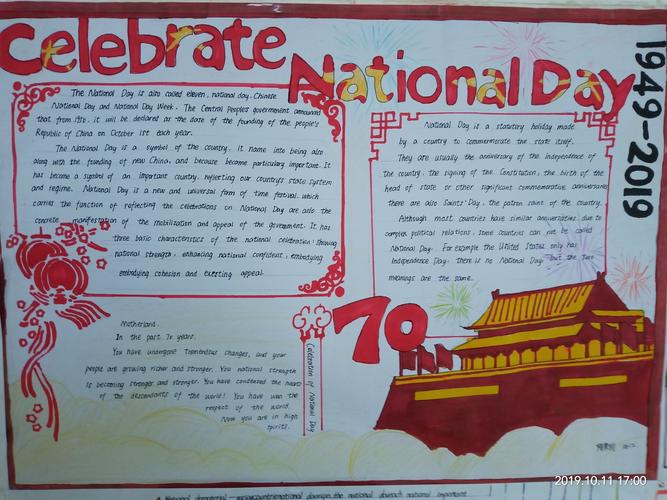 Celebrate
National Day
1949-2019
The National Day is also called eleven, national day, Chinese
National Day and National Day Week. The Central People's government announced
that from 1950, it will be declared as the date of the founding of the people's
Republic of China on October 1st each year.
The National Day is a symbol of the country. It name into being also
along with the founding of new China, and because become particularly important. It
has become a symbol of an important country, reflecting our country's state system
and regime. National Day is a new and universal form of time festival, which
carries the function of reflecting the celebrations on National Day are also the
concrete manifestation of the mobilization and appeal of the government. It has
three basic characteristics of the national celebration: showing
national strength, enhancing national confident, embodying
embodying cohesion and exciting appeal.
National Day is a statutory holiday made
by a country to commemorate the state itself.
They are usually the anniversary of the independence of
the country, the signing of the Constitution, the birth of the
head of state or other significant commemorative anniversaries
there are also Saints' Day, the patron saint of the country.
Although most countries have similar anniversaries, due to
complex political relations, some countries can not be called
National Day. For example the United States only has
Independence Day, there is no National Day, but the two
meanings are the same.
Motherland.
In the past 70 years,
You have undergone tremendous changes, and your
people are growing richer and stronger. You national strength
is becoming stronger and stronger. You have condensed the hearts
of the descendants of the world! You have won the
respect of the world.
Now you are in high
spirits.
Celebration of National Day
70
2019.10.11 17:00